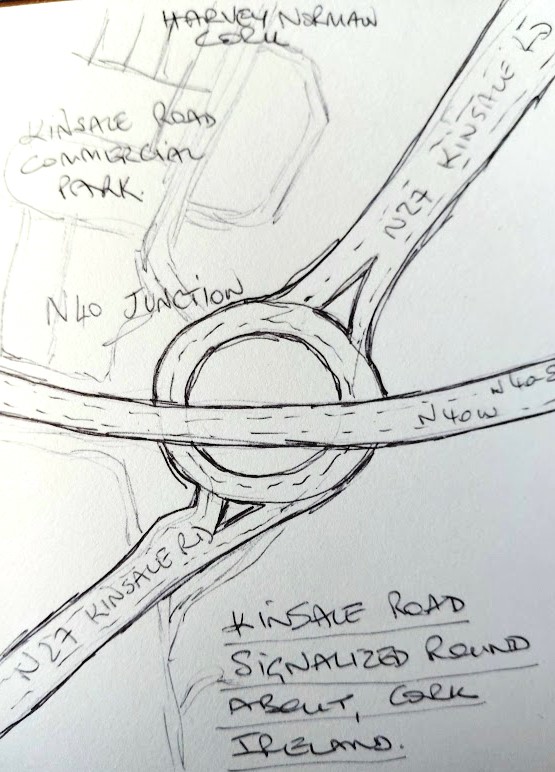 HARVEY NORMAN
CORK
KINSALE ROAD
COMMERCIAL
PARK.
N27 KINSALE RD
N40 JUNCTION
N40W N40E
N27 KINSALE RD
KINSALE ROAD
SIGNALIZED ROUND
ABOUT, CORK
IRELAND.